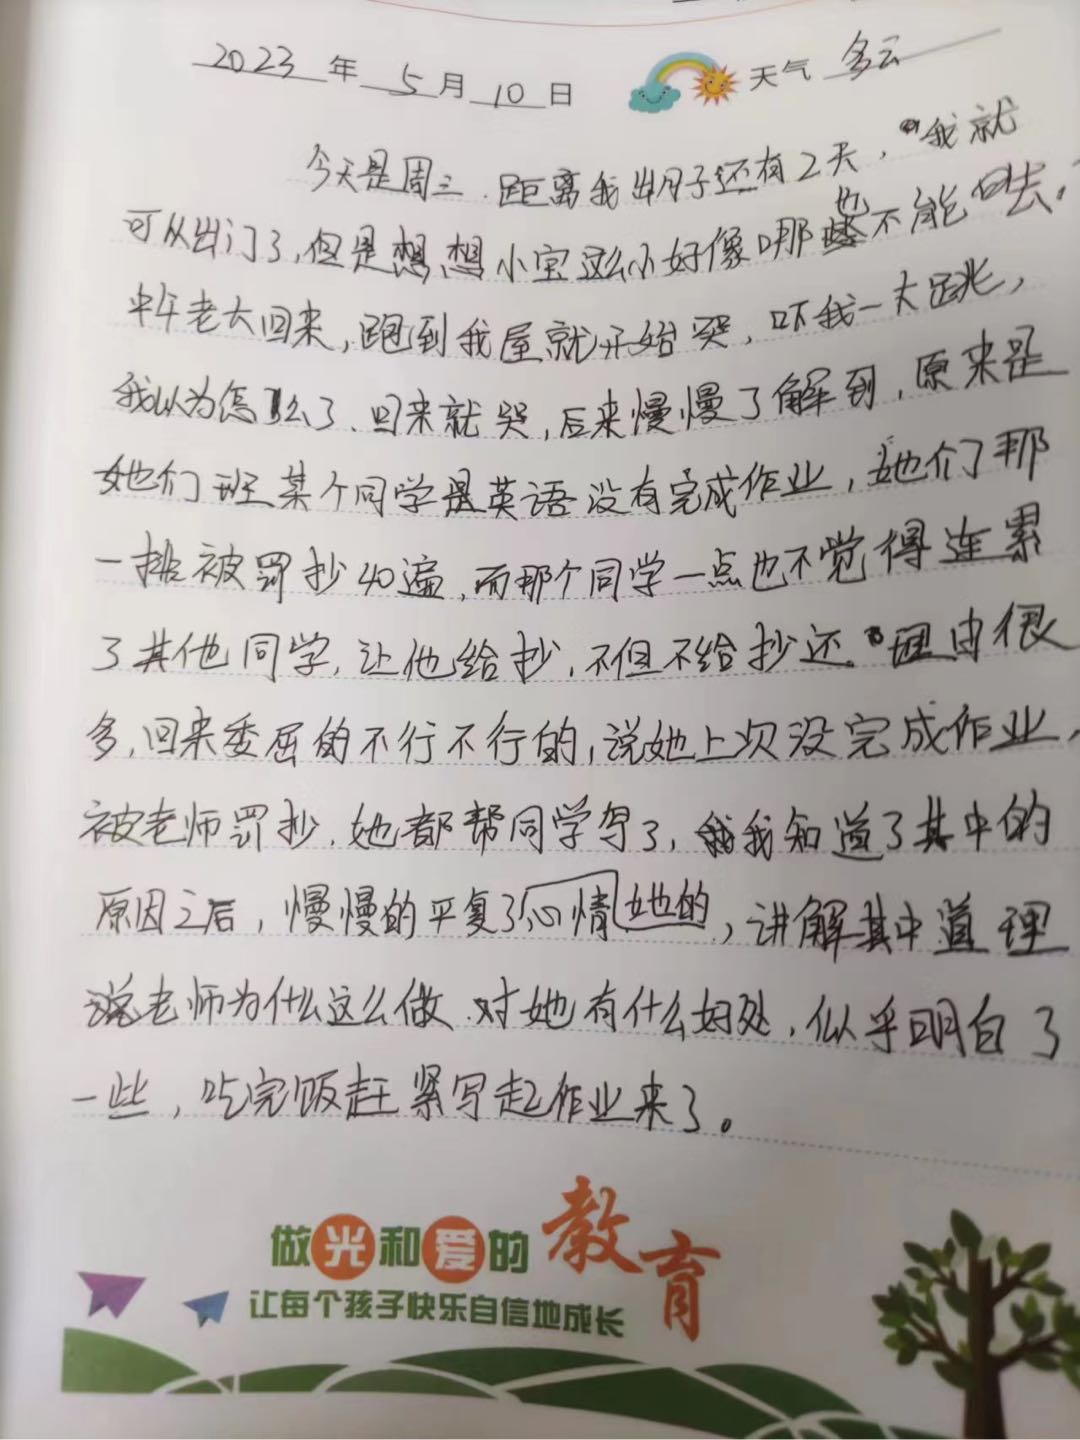 2023年5月10日 天气 多云
今天是周三.距离我出月子还有2天,我就
可以出门了,但是想想小宝这么小好像哪也不能回去.
中午老大回来,跑到我屋就开始哭,吓我一大跳,
我以为怎么了.回来就哭,后来慢慢了解到,原来是
她们班某个同学是英语没有完成作业,她们那
一排被罚抄40遍,而那个同学一点也不觉得连累
了其他同学,让他给抄,不但不给抄还.理由很
多,回来委屈的不行不行的,说她上次没完成作业,
被老师罚抄.她都帮同学写了,我知道了其中的
原因之后,慢慢的平复了心情她的,讲解其中道理
说老师为什么这么做.对她有什么好处,似乎明白了
一些,吃完饭赶紧写起作业来了。
做光和爱的教育
让每个孩子快乐自信地成长